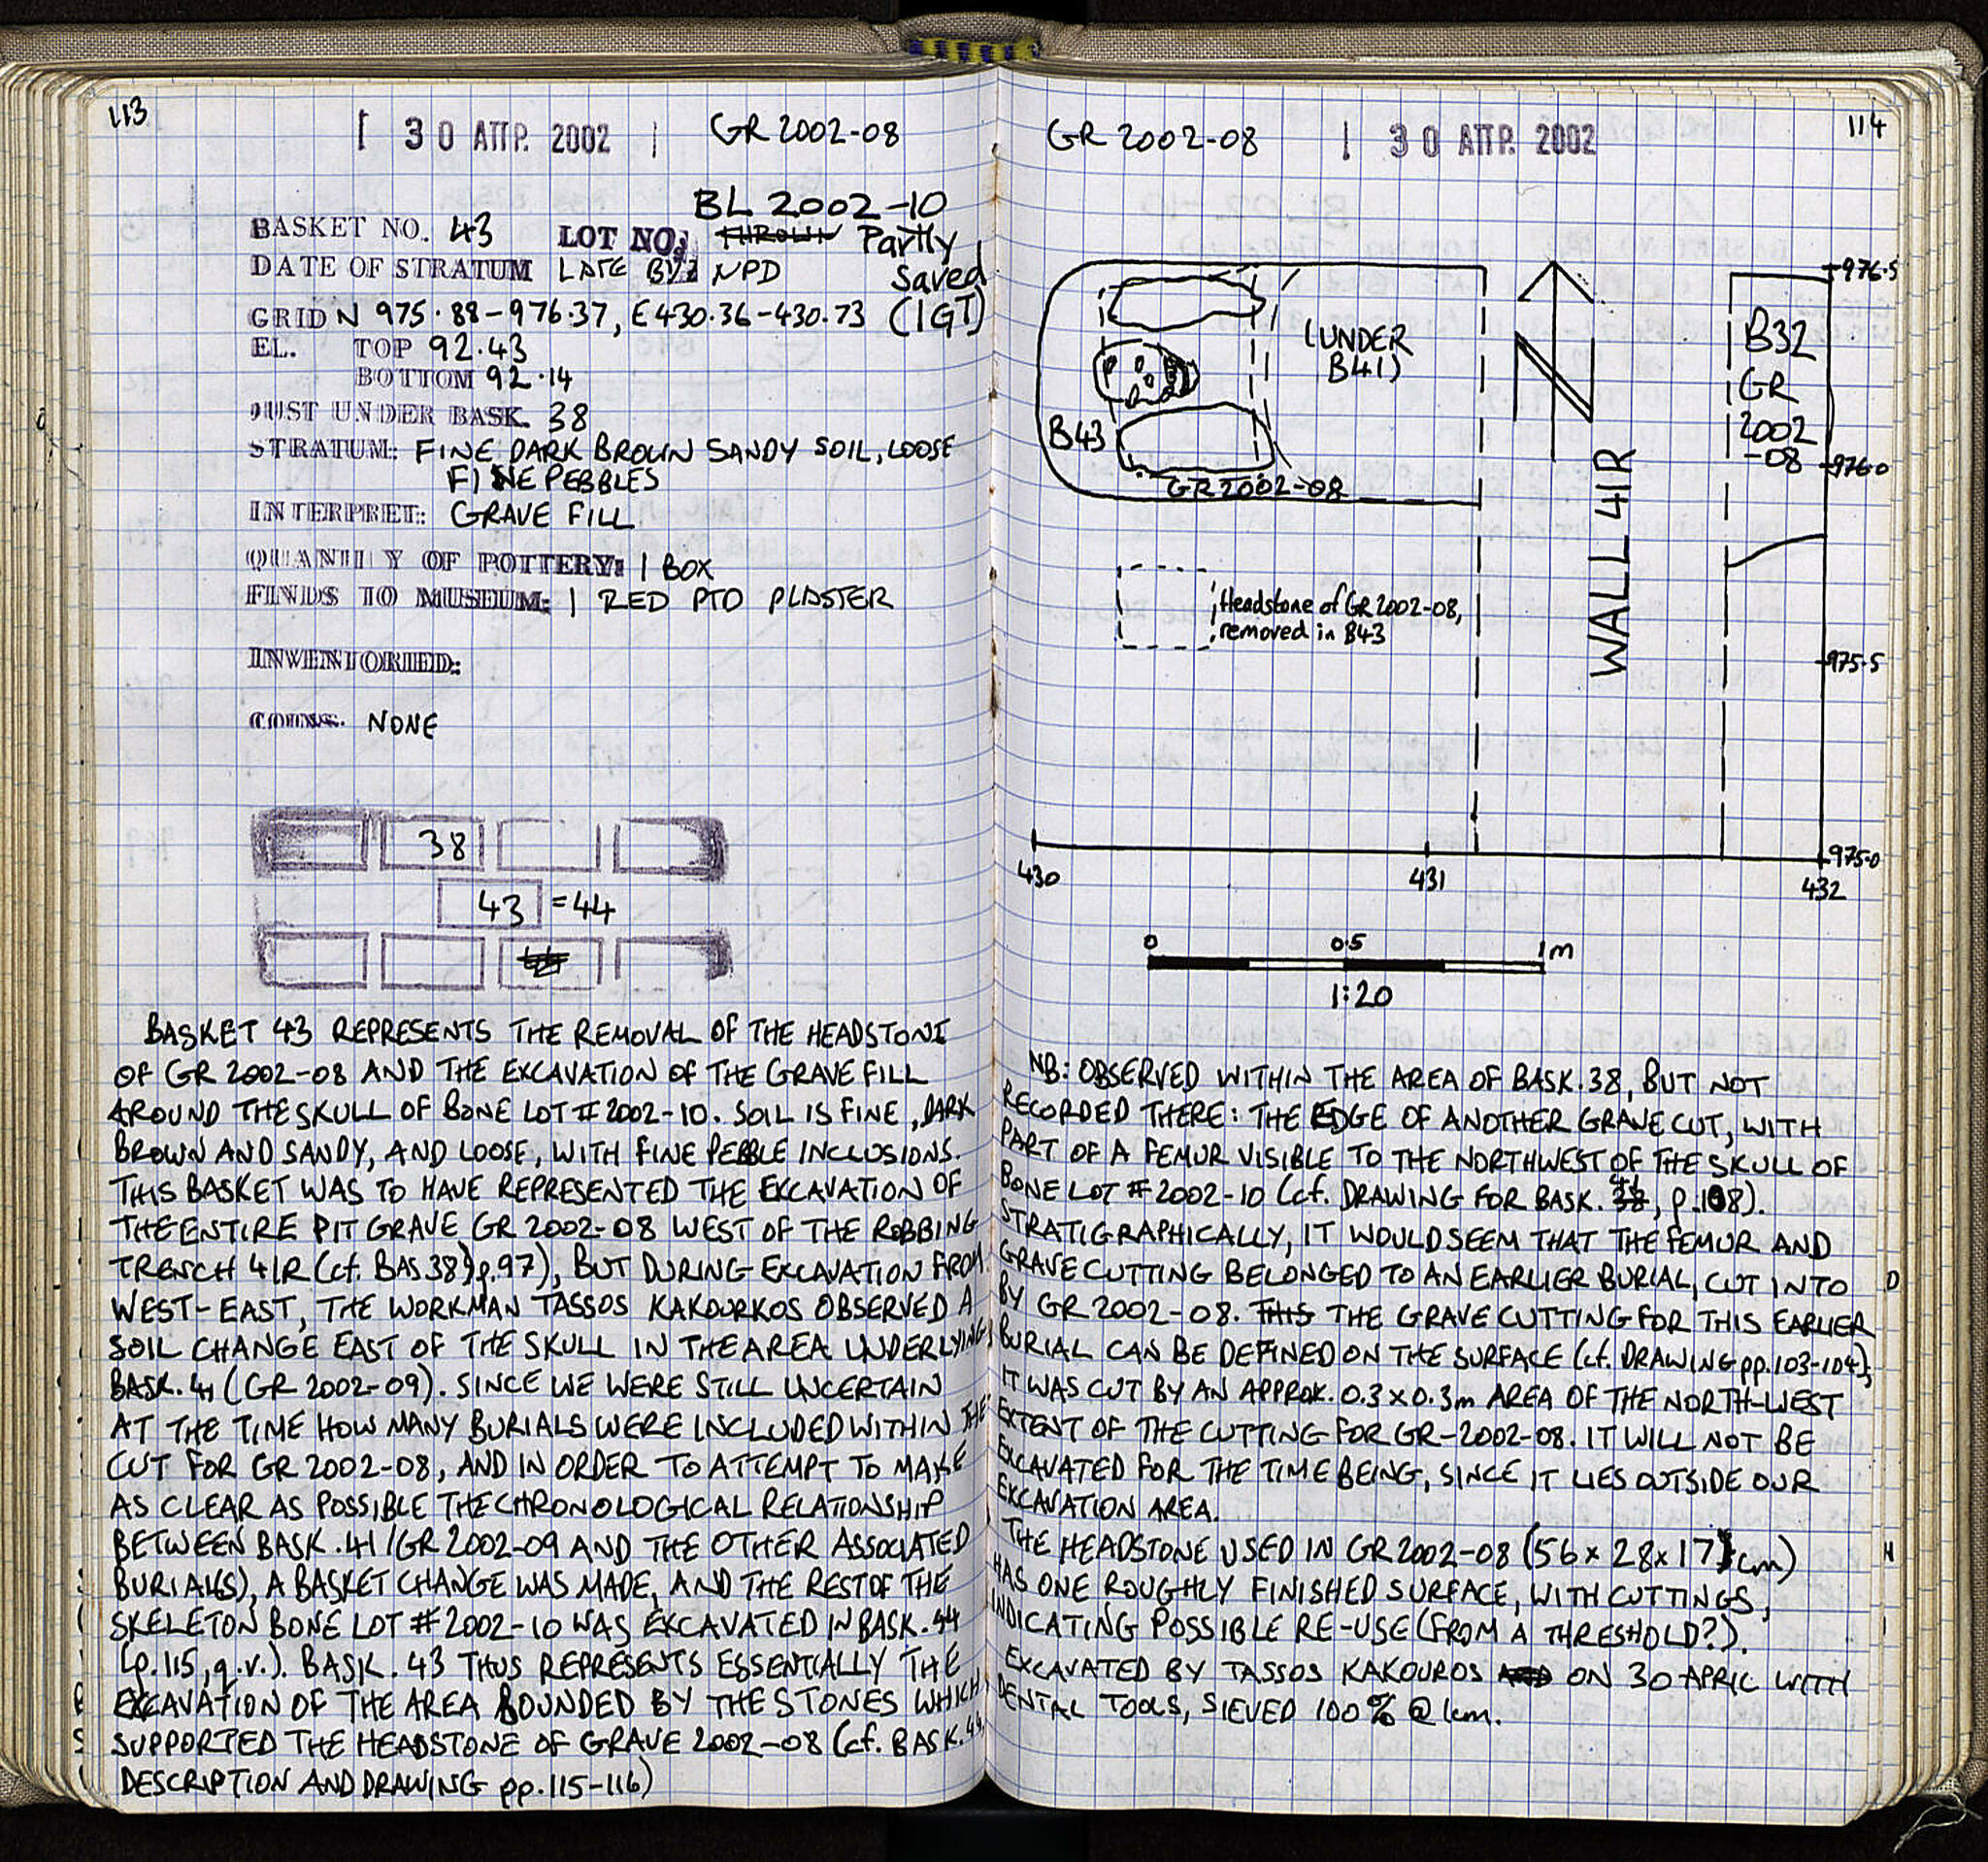 113
30 ΑΠΡ. 2002 GR 2002-08
BL 2002-10
BASKET NO. 43 LOT NO: THROWN Partly
saved
DATE OF STRATUM LATE BYZ NPD
GRID N 975.88-976.37, E430.36-430.73 (IGT)
EL. TOP 92.43
BOTTOM 92.14
JUST UNDER BASK. 38
STRATUM: FINE DARK BROWN SANDY SOIL, LOOSE
FINE PEBBLES
INTERPRET: GRAVE FILL
QUANTITY OF POTTERY: 1 BOX
FINDS TO MUSEUM: 1 RED PTD PLASTER
INVENTORIED:
COINS. NONE
38
43 = 44
BASKET 43 REPRESENTS THE REMOVAL OF THE HEADSTONE
OF GR 2002-08 AND THE EXCAVATION OF THE GRAVE FILL
AROUND THE SKULL OF BONE LOT # 2002-10. SOIL IS FINE, DARK
BROWN AND SANDY, AND LOOSE, WITH FINE PEBBLE INCLUSIONS.
THIS BASKET WAS TO HAVE REPRESENTED THE EXCAVATION OF
THE ENTIRE PIT GRAVE GR 2002-08 WEST OF THE ROBBING
TRENCH 41R (cf. BAS 38, p.97), BUT DURING EXCAVATION FROM
WEST-EAST, THE WORKMAN TASSOS KAKOURKOS OBSERVED A
SOIL CHANGE EAST OF THE SKULL IN THE AREA UNDERLYING
BASK. 41 (GR 2002-09). SINCE WE WERE STILL UNCERTAIN
AT THE TIME HOW MANY BURIALS WERE INCLUDED WITHIN THE
CUT FOR GR 2002-08, AND IN ORDER TO ATTEMPT TO MAKE
AS CLEAR AS POSSIBLE THE CHRONOLOGICAL RELATIONSHIP
BETWEEN BASK. 41/GR 2002-09 AND THE OTHER ASSOCIATED
BURIAL(S), A BASKET CHANGE WAS MADE, AND THE REST OF THE
SKELETON BONE LOT # 2002-10 WAS EXCAVATED IN BASK. 44
(p.115, q.v.). BASK. 43 THUS REPRESENTS ESSENTIALLY THE
EXCAVATION OF THE AREA BOUNDED BY THE STONES WHICH
SUPPORTED THE HEADSTONE OF GRAVE 2002-08 (cf. BASK. 44,
DESCRIPTION AND DRAWING pp.115-116)
GR 2002-08 30 ΑΠΡ. 2002 114
976.5
(UNDER
B41)
N
B32
GR
2002
-08
B43
976.0
GR 2002-08
WALL 41R
Headstone of GR 2002-08,
removed in B43
975.5
975.0
430 431 432
0 0.5 1m
1:20
NB: OBSERVED WITHIN THE AREA OF BASK. 38, BUT NOT
RECORDED THERE: THE EDGE OF ANOTHER GRAVE CUT, WITH
PART OF A FEMUR VISIBLE TO THE NORTHWEST OF THE SKULL OF
BONE LOT # 2002-10 (cf. DRAWING FOR BASK. 38 41, p.108).
STRATIGRAPHICALLY, IT WOULD SEEM THAT THE FEMUR AND
GRAVE CUTTING BELONGED TO AN EARLIER BURIAL, CUT INTO
BY GR 2002-08. THIS THE GRAVE CUTTING FOR THIS EARLIER
BURIAL CAN BE DEFINED ON THE SURFACE (cf. DRAWING pp.103-104);
IT WAS CUT BY AN APPROX. 0.3 x 0.3m AREA OF THE NORTH-WEST
EXTENT OF THE CUTTING FOR GR-2002-08. IT WILL NOT BE
EXCAVATED FOR THE TIME BEING, SINCE IT LIES OUTSIDE OUR
EXCAVATION AREA.
THE HEADSTONE USED IN GR 2002-08 (56 x 28 x 17 cm)
HAS ONE ROUGHLY FINISHED SURFACE, WITH CUTTINGS,
INDICATING POSSIBLE RE-USE (FROM A THRESHOLD?).
EXCAVATED BY TASSOS KAKOUROS ON 30 APRIL WITH
DENTAL TOOLS, SIEVED 100% @ 1cm.